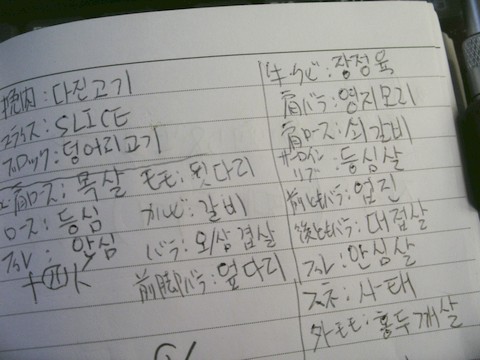 挽肉:다진고기
スライス:SLICE
ブロック:덩어리고기
肩ロース:목살 モモ:뒷다리
ロース:등심 カルビ:갈비
フィレ:안심 バラ:오/삼겹살
前脚バラ:옆다리
牛クビ:장정육
肩バラ:영지모리
肩ロース:쇠갈비
サーロイン リブ:등심살
前ともバラ:업진
後ともバラ:대접살
フィレ:안심살
スネ:사태
外モモ:홍두깨살